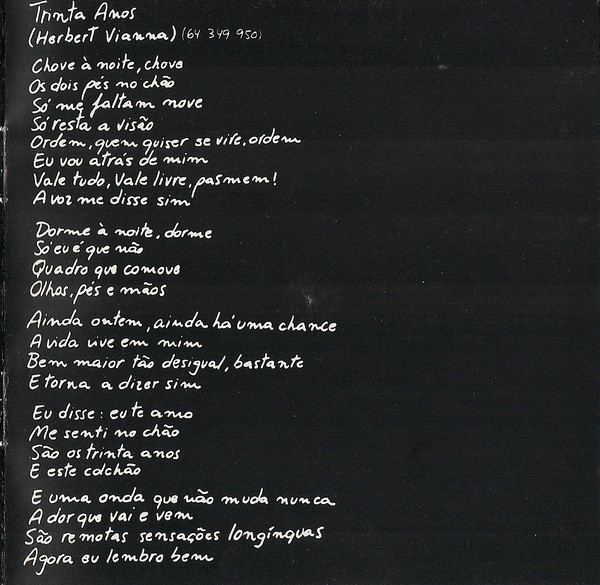 Trinta Anos
(Herbert Vianna) (64 349 950)
Chove à noite, chove
Os dois pés no chão
Só me faltam nove
Só resta a visão
Ordem, quem quiser se vire, ordem
Eu vou atrás de mim
Vale tudo, Vale livre, pasmem!
A voz me disse sim
Dorme à noite, dorme
Só eu é que não
Quadro que comove
Olhos, pés e mãos
Ainda ontem, ainda há uma chance
A vida vive em mim
Bem maior tão desigual, bastante
E torna a dizer sim
Eu disse: eu te amo
Me senti no chão
São os trinta anos
E este colchão
E uma onda que não muda nunca
A dor que vai e vem
São remotas sensações longínquas
Agora eu lembro bem